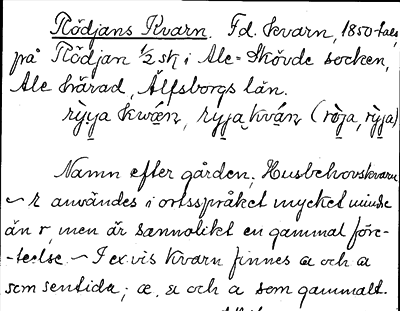 Rödjans Kvarn. Fd. kvarn, 1850-tals,
på Rödjan ½ sk i Ale-Skövde socken,
Ale härad, Älfsborgs län.
rỳja kwæ̀n, ryja kván (ròja, rỳja)
Namn efter gården, Husbehovskvarn
~ r användes i ortsspråket mycket mindre
än r, men är sannolikt en gammal före-
-teelse. ~ I ex.vis kvarn finnes a och a
som sentida; æ, a och a som gammalt.